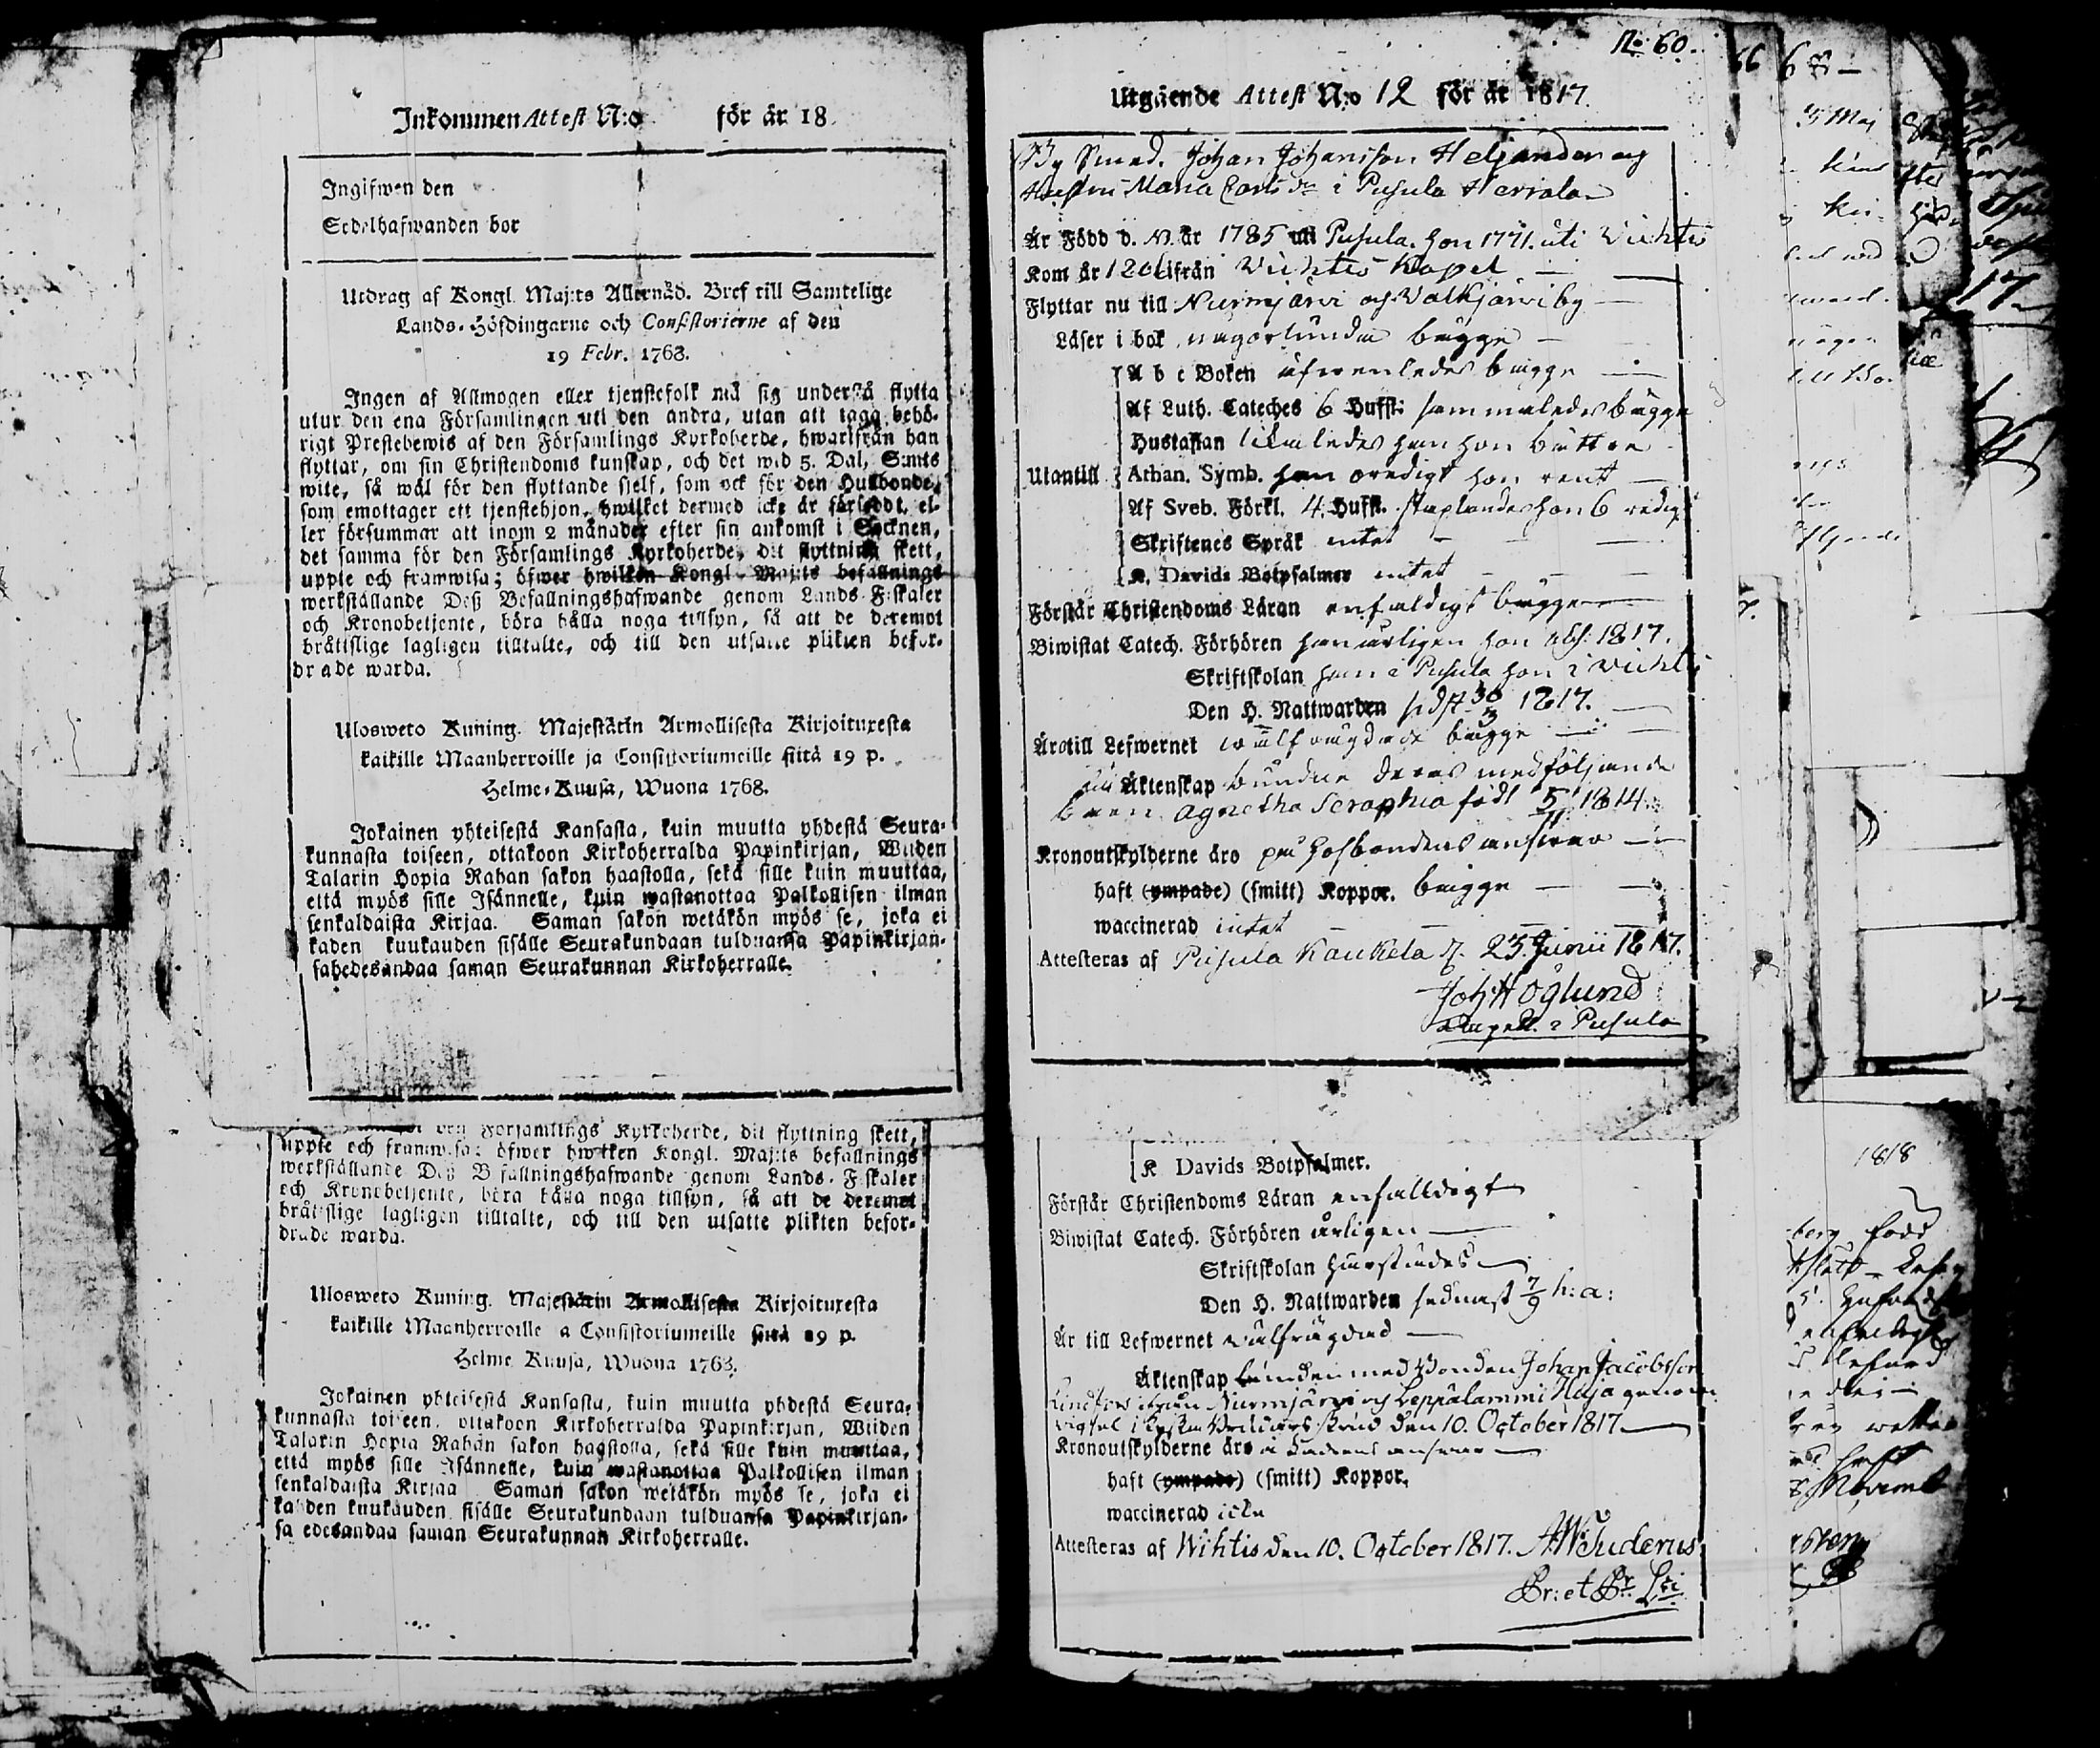 Inkommen Attest N:o för år 18
Ingifwen den
Sedelhafwanden bor
Utdrag af Kongl. Maj:ts Allernåd. Bref till Samtelige
Lands-Höfdingarne och Consistorierne af den
19 Febr. 1768.
Ingen af Allmogen eller tjenstefolk må sig understå flytta
utur den ena Församlingen uti den andra, utan att taga behö-
rigt Prestebewis af den Församlings Kyrkoherde, hwarifrån han
flyttar, om sin Christendoms kunskap, och det wid 5. Dal, S:mts
wite, så wäl för den flyttande sjelf, som ock för den Husbonde,
som emottager ett tjenstehjon, hwilket dermed icke är försedt, el-
ler försummar att inom 2 månader efter sin ankomst i Socknen,
det samma för den Församlings Kyrkoherde, dit flyttning skett,
uppte och framwisa; öfwer hwilken Kongl. Maj:ts befallnings
werkställande Deß Befallningshafwande genom Lands-Fiskaler
och Kronobetjente, böra hålla noga tillsyn, så att de deremot
bråttslige lagligen tilltalte, och till den utsatte plikten befor-
drade warda.
Ulosweto Kuning. Majestätin Armollisesta Kirjoituxesta
kaikille Maanherroille ja Consistoriumeille siitä 19 p.
Helme-Kuusa, Wuona 1768.
Jokainen yhteisestä Kansasta, kuin muutta yhdestä Seura-
kunnasta toiseen, ottakoon Kirkoherralda Papinkirjan, Wiiden
Talarin Hopia Rahan sakon haastolla, sekä sille kuin muuttaa,
että myös sille Isännelle, kuin wastanottaa Palkollisen ilman
senkaldaista Kirjaa. Saman sakon wetäkön myös se, joka ei
kaden kuukauden sisälle Seurakundaan tulduansa Papinkirjan-
sahedesandaa saman Seurakunnan Kirkoherralle.
den Församlings Kyrkoherde, dit flyttning skett,
uppte och framwisa; öfwer hwilken Kongl. Maj:ts befallnings
werkställande Deß Befallningshafwande genom Lands-Fiskaler
och Kronobetjente, böra hålla noga tillsyn, så att de deremot
bråttslige lagligen tilltalte, och till den utsatte plikten befor-
drade warda.
Ulosweto Kuning. Majestätin Armollisesta Kirjoituxesta
kaikille Maanherroille ja Consistoriumeille siitä 19 p.
Helme Kuusa, Wuona 1768.
Jokainen yhteisestä Kansasta, kuin muutta yhdestä Seura-
kunnasta toiseen, ottakoon Kirkoherralda Papinkirjan, Wiiden
Talarin Hopia Rahan sakon haastolla, sekä sille kuin muuttaa,
että myös sille Isännelle, kuin wastanottaa Palkollisen ilman
senkaldaista Kirjaa Saman sakon wetäkön myös se, joka ei
kahden kuukauden sisälle Seurakundaan tulduansa Papinkirjan-
sa edesandaa saman Seurakunnan Kirkoherralle.
No 60.
Utgående Attest N:o 12 för år 1817.
By Smed. Johan Johansson Heljander og
Hustru Maria Carls dr i Pusula Herrala
Är Född d. N. år 1785 uti Pusula. hon 1771. uti Wichtis
Kom år ifrån Wichtis Kapel
Flyttar nu till Nurmjärvi og Valkjärvi by
Läser i bok någorlunda bägge
A b c Boken äfwenledes bägge
Af Luth. Cateches 6 Hufst: sammaledes bägge
Hustaflan likaledes han hon bättre
Utantill Athan. Symb. han oredigt hon rent
Af Sveb. Förkl. 4. Hufst. staplandes hon 6 redigt
Skriftenes Språk intet
K. Davids Botpsalmer intet
Förstår Christendoms Läran enfaldigt bägge
Biwistat Catech. Förhören han årligen hon abs: 1817.
Skriftskolan han i Pusula hon i Wichtis
Den H. Nattwarden sidst 30/3 1817.
Äro till Lefwernet wälfrägdade bägge
Äktenskap bundne deras medföljande
barn Agnetha Seraphia född 5/11 1814.
Kronoutskylderne äro på Husbondens answar
haft (ympade) (smitt) Koppor. bägge
waccinerad intet
Attesteras af Pusula Kaukela d. 23. Junii 1817.
Joh: Höglund
Capell. i Pusula
K Davids Botpsalmer.
Förstår Christendoms Läran enfalldigt
Biwistat Catech. Förhören årligen
Skriftskolan härstädes
Den H. Nattwarden sednast 7/9 h: a:
Är till Lefwernet wälfrägdad
Äktenskap bunden med Bonden Johan Jacobsson
Lindfors ifrån Nurmjärvi og Leppälammi Haja genom
vigsel den 10. October 1817
Kronoutskylderne äro å answar
haft (ympade) (smitt) Koppor,
waccinerad icke
Attesteras af Wihtis den 10. October 1817. A W Tuderus
Pr: et Pr. Lri
66
68
1818
17